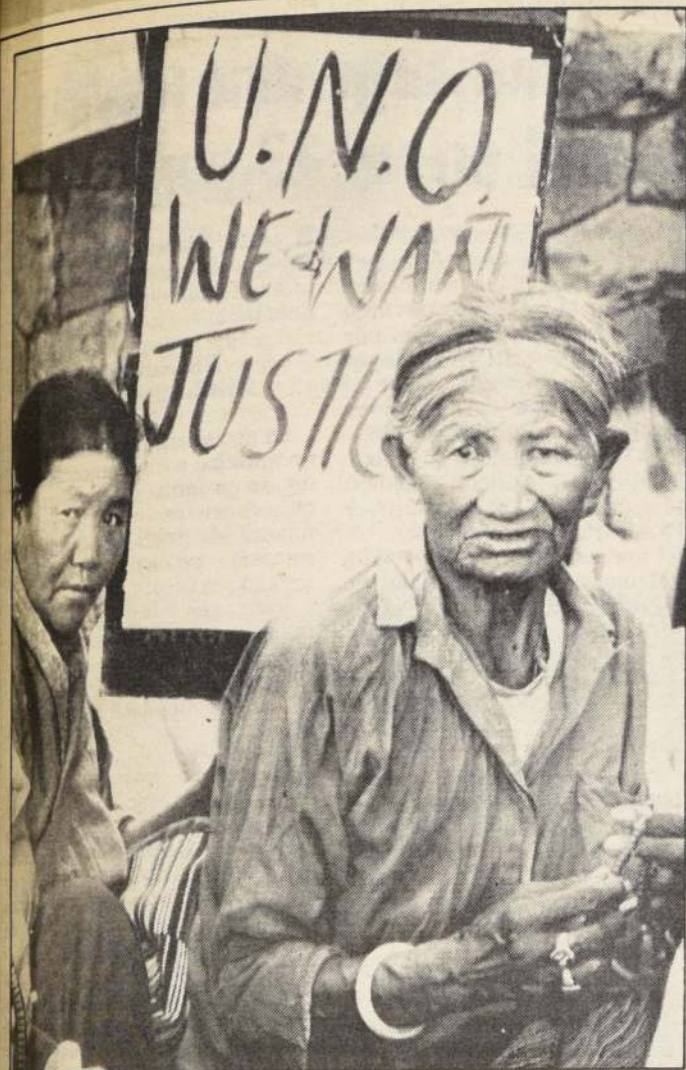 U.N.O.
WE WANT
JUSTIC